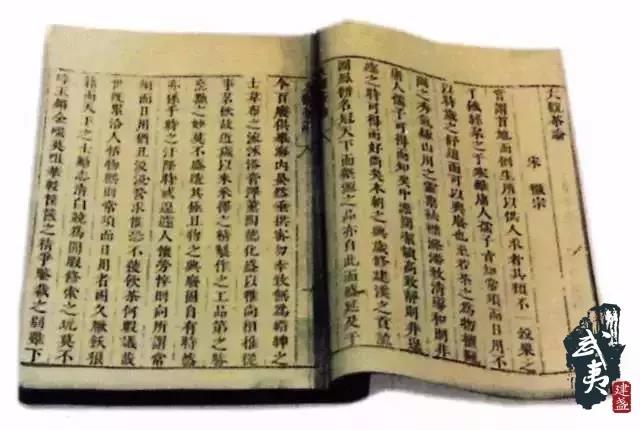 大觀茶論
宋 徽宗
嘗謂首地而倒生所以供人求者其類不 穀粟之
于饑絲枲之于寒雖庸人孺子皆知常須而日用不
以時歲之舒迫而可以興廢也至若茶之為物擅甌
閩之秀氣鍾山川之靈禀祛襟滌滯致清導和則非
庸人孺子可得而知矣中澹閒潔韻高致靜則非遑
遽之時可得而好尚矣本朝之興歲修建溪之貢龍
團鳳餅名冠天下而壑源之品亦自此而盛延及于
今百廢俱舉海內晏然垂拱密勿幸致無為縉紳之
士韋布之流沐浴膏澤薰陶德化盛以雅尚相推從
事茗飲故近歲以來采擇之精製作之工品第之勝
烹點之妙莫不盛造其極且物之興廢固自有時然
亦係乎時之汙隆時或遑遽人懷勞悴則向所謂常
須而日用猶且汲汲營求惟恐不獲飲茶何暇議哉
世既累洽人恬物熙則常須而日用者固久厭飫狼
籍而天下之士勵志清白競為閒暇修索之玩莫不
碎玉鏘金啜英咀華較筐篋之精爭鑒裁之別雖下
武夷
建盞